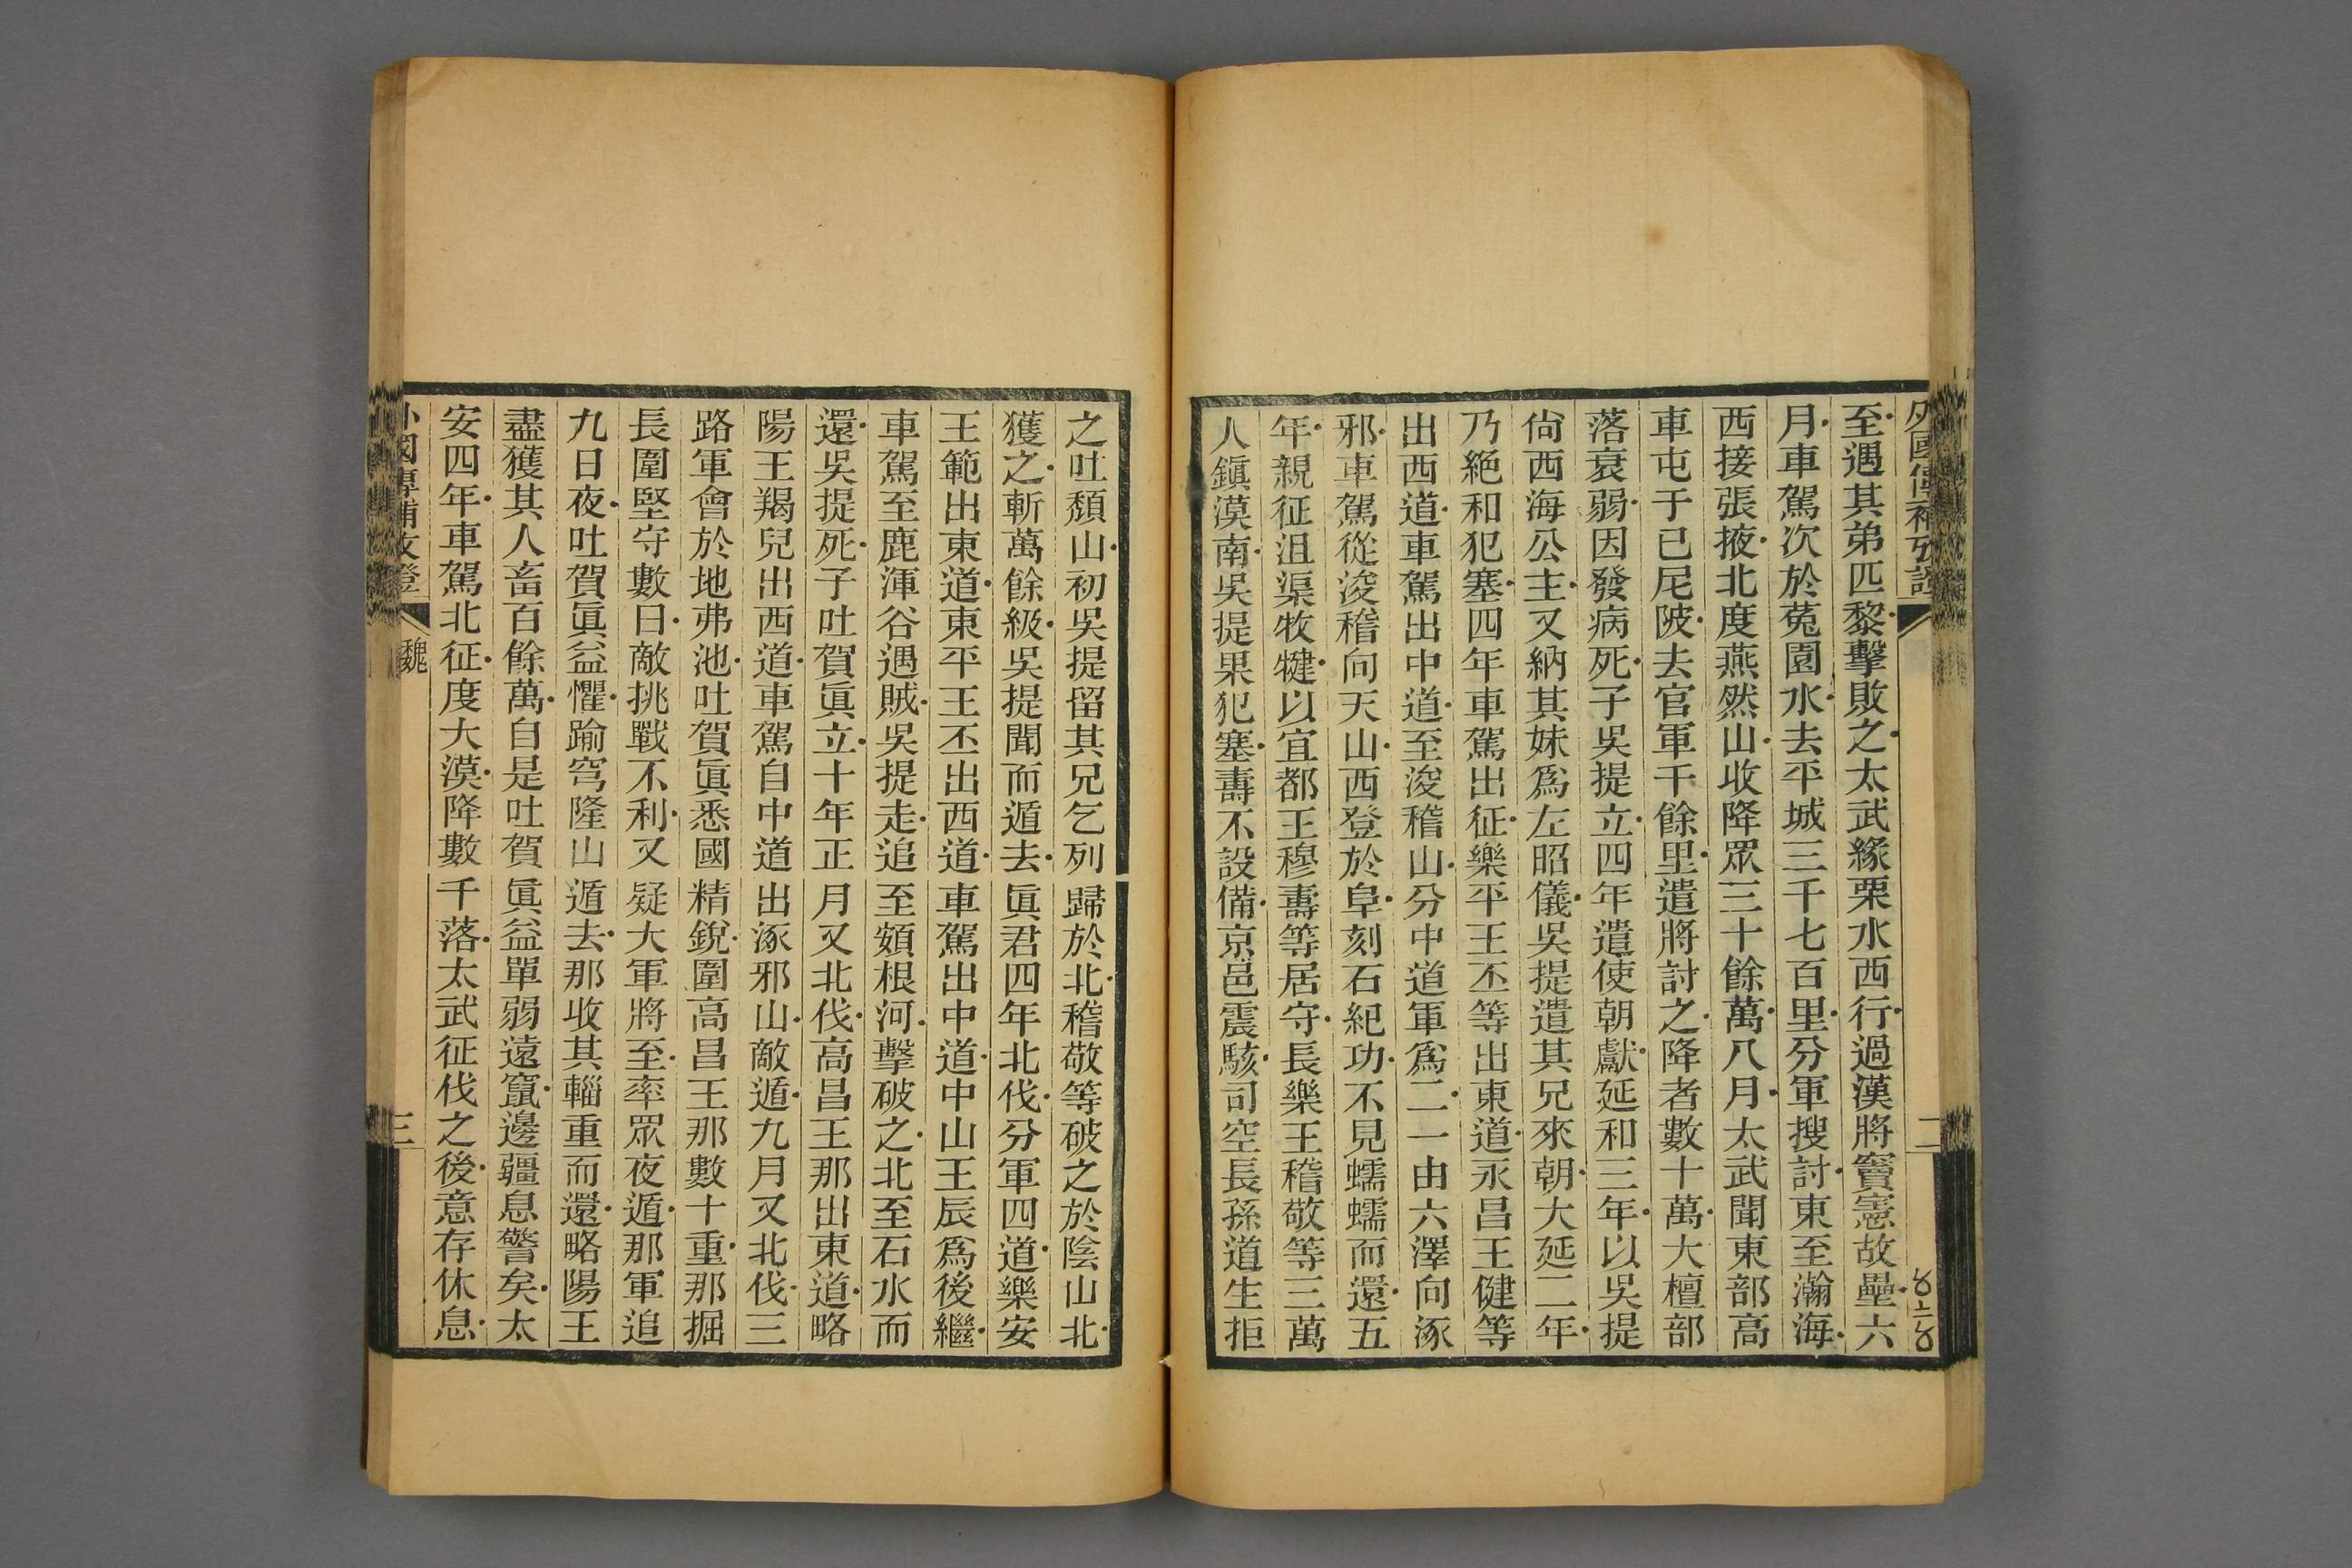 外國傳補攷證
二
至遇其弟匹黎擊敗之太武緣栗水西行過漢將竇憲故壘六
月車駕次於菟園水去平城三千七百里分軍搜討東至瀚海
西接張掖北度燕然山收降眾三十餘萬八月太武聞東部高
車屯于已尼陂去官軍千餘里遣將討之降者數十萬大檀部
落衰弱因發病死子吳提立四年遣使朝獻延和三年以吳提
尙西海公主又納其妹爲左昭儀吳提遣其兄來朝大延二年
乃絶和犯塞四年車駕出征樂平王丕等出東道永昌王健等
出西道車駕出中道至浚稽山分中道軍爲二一由六澤向涿
邪車駕從浚稽向天山西登於阜刻石紀功不見蠕蠕而還五
年親征沮渠牧犍以宜都王穆壽等居守長樂王稽敬等三萬
人鎭漠南吳提果犯塞壽不設備京邑震駭司空長孫道生拒
之吐頹山初吳提留其兄乞列歸於北稽敬等破之於陰山北
獲之斬萬餘級吳提聞而遁去眞君四年北伐分軍四道樂安
王範出東道東平王丕出西道車駕出中道中山王辰爲後繼
車駕至鹿渾谷遇賊吳提走追至頞根河擊破之北至石水而
還吳提死子吐賀眞立十年正月又北伐高昌王那出東道略
陽王羯兒出西道車駕自中道出涿邪山敵遁九月又北伐三
路軍會於地弗池吐賀眞悉國精銳圍高昌王那數十重那掘
長圍堅守數日敵挑戰不利又疑大軍將至率眾夜遁那軍追
九日夜吐賀眞益懼踰穹隆山遁去那收其輜重而還略陽王
盡獲其人畜百餘萬自是吐賀眞益單弱遠竄邊疆息警矣太
安四年車駕北征度大漠降數千落太武征伐之後意存休息
外國傳補攷證
魏
三